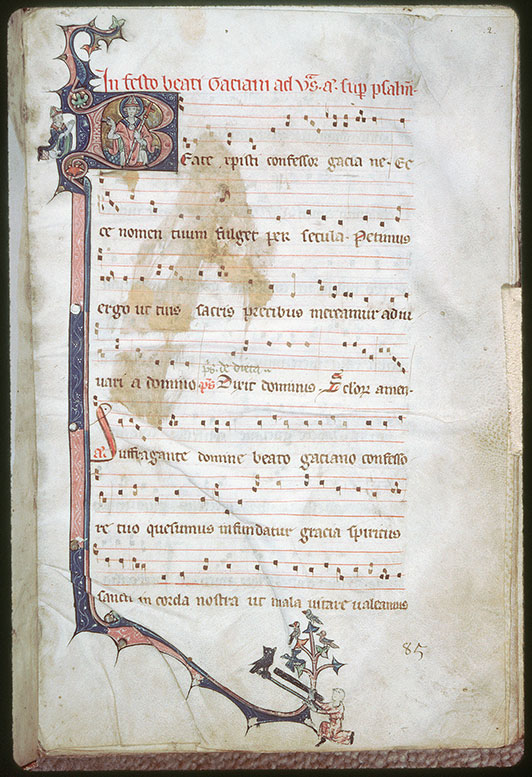 2.
In festo beati Gaciani ad Vs. a. sup psalm.
Beate xpisti confessor gacia ne. Ec
ce nomen tuum fulget per secula. Petimus
ergo ut tuis sacris precibus mereamur adiu
ps. de dieta
vari a domino ps Dixit dominus. Seculor amen.
a. Suffragante domine beato gaciano confesso
re tuo quesumus infundatur gracia spiritus
sancti in corda nostra ut mala vitare valeamus
85